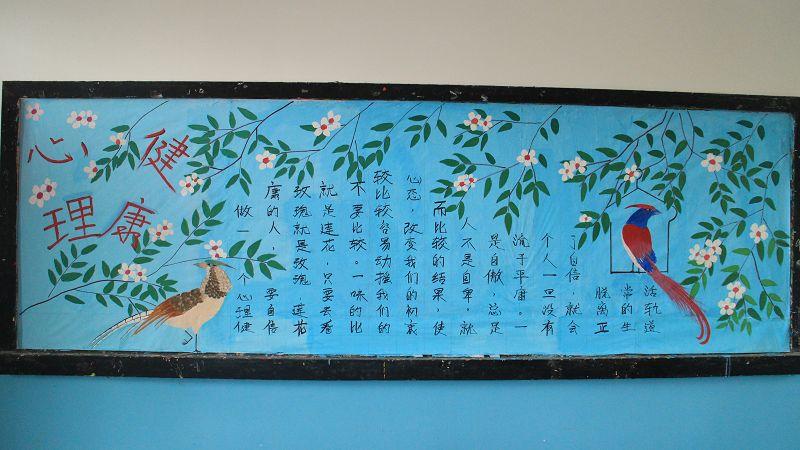 心理健康
做一个心理健
康的人，要自信
玫瑰就是玫瑰，莲花
就是莲花，只要去看
不要比较。一味的比
较比较容易动摇我们的
心态，改变我们的初衷
而比较的结果，使
人不是自卑，就
是自傲，总是
流于平庸。一
个人一旦没有
了自信，就会
脱离正
常的生
活轨道